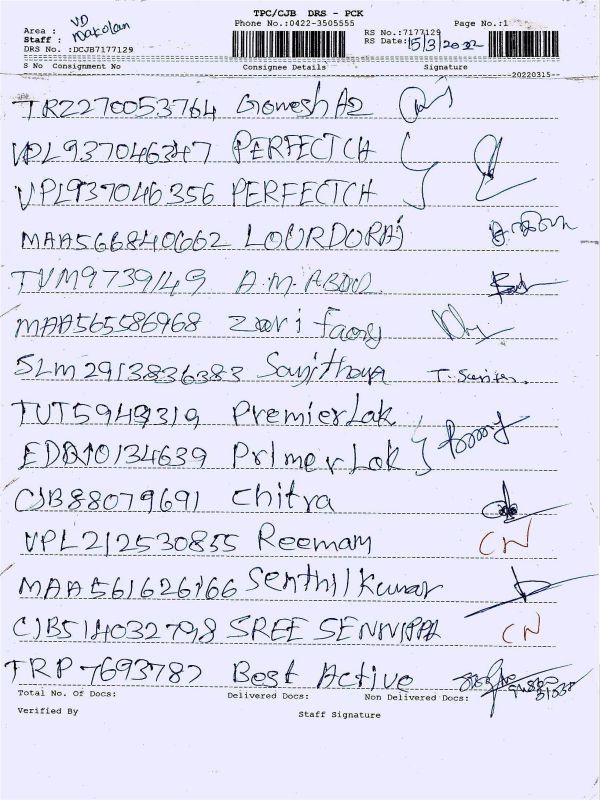 TPC/CJB DRS - PCK
Phone No.:0422-3505555
Page No.:1
Area : VD
Staff :
DRS No. :DCJB7177129
RS No.:7177129
RS Date: 15/3/2022
S No Consignment No Consignee Details Signature
20220315
TRZ270053764
VPL937046347 PERFECTCH
VPL937046356 PERFECTCH
MAA566840662 LOURDURAJ
TVM9739149 A.M. ABDUL
MAA565586968 Zari
SLM2913836383
TUT5949319 PremierLak
EDQ10134639 PrImerLak
CJB88079691 Chitra
VPL212530855 Reemam CN
MAA561626166 Senthil Kumar
CJB514032798 SREE CN
TRP7693787 Best Active
Total No. Of Docs: Delivered Docs: Non Delivered Docs:
Verified By Staff Signature